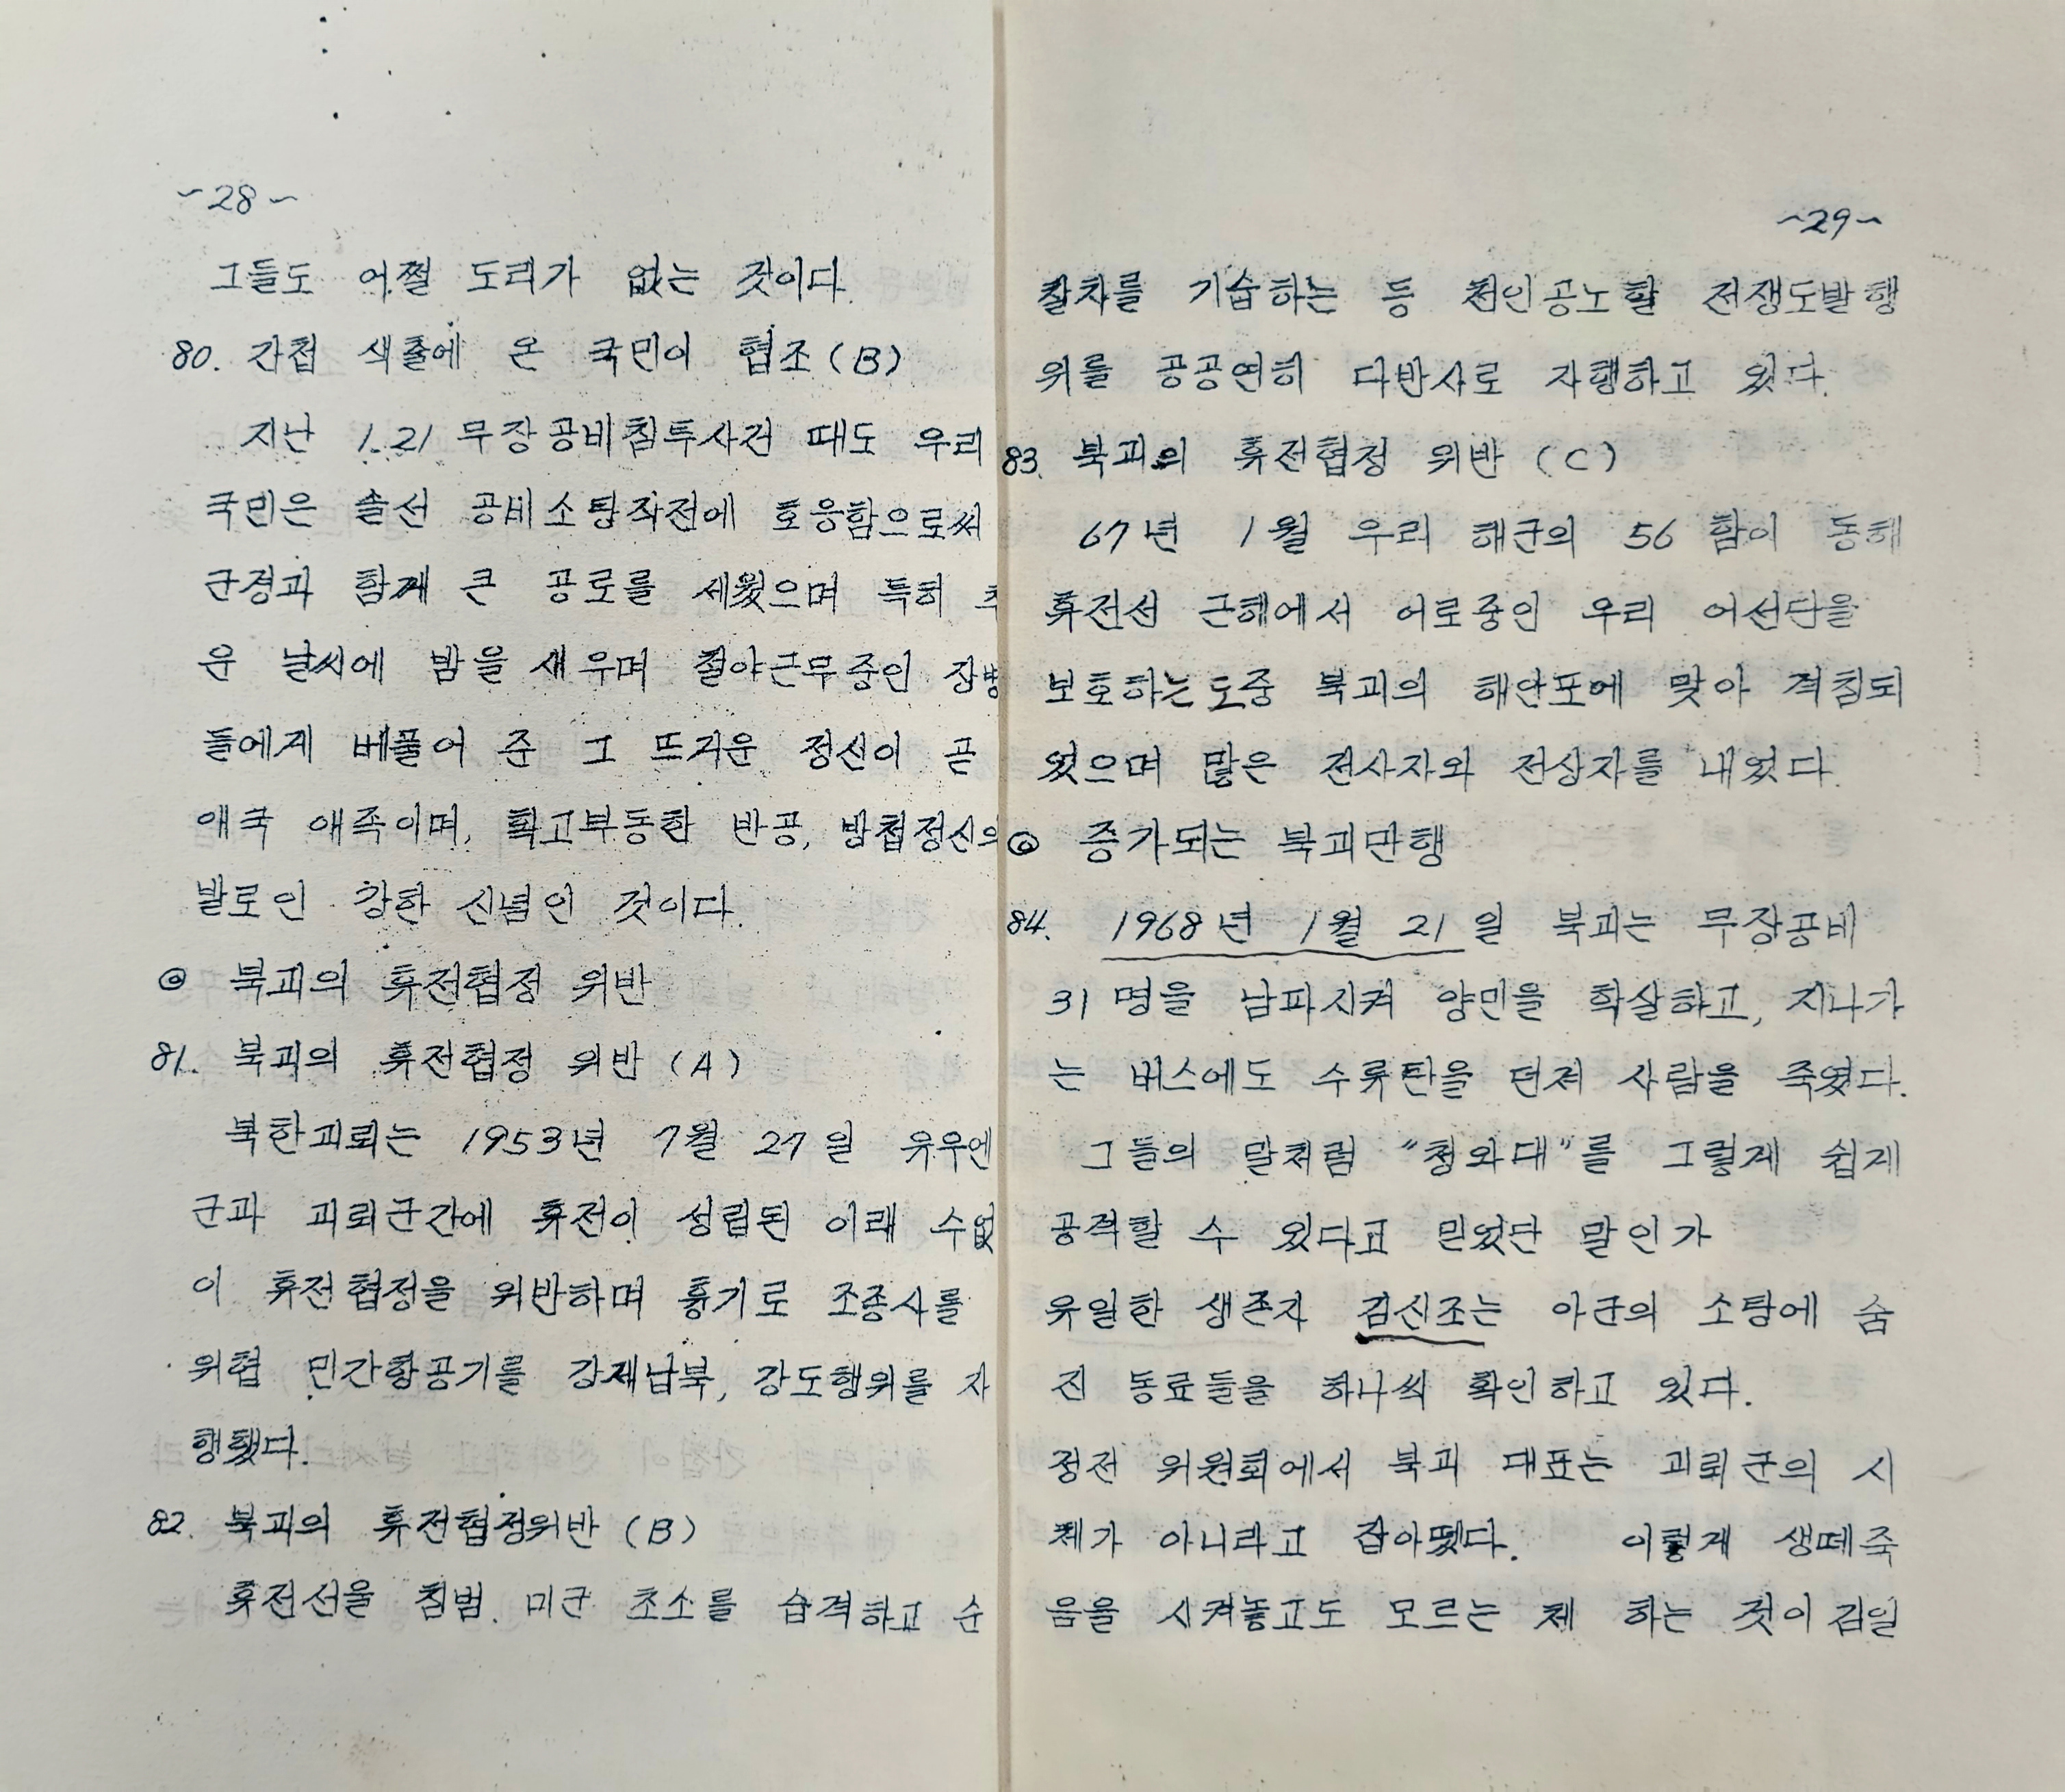 ~28~
그들도 어쩔 도리가 없는 것이다.
80. 간첩 색출에 온 국민이 협조(B)
지난 1.21 무장공비침투사건 때도 우리
국민은 솔선 공비소탕작전에 호응함으로써
군경과 함께 큰 공로를 세웠으며 특히 추
운 날씨에 밤을 새우며 철야근무중인 장병
들에게 베풀어 준 그 뜨거운 정신이 곧
애국 애족이며, 확고부동한 반공, 방첩정신의
발로인 강한 신념인 것이다.
◎ 북괴의 휴전협정 위반
81. 북괴의 휴전협정 위반 (A)
북한괴뢰는 1953년 7월 27일 유우엔
군과 괴뢰군간에 휴전이 성립된 이래 수없
이 휴전협정을 위반하며 흉기로 조종사를
위협 민간항공기를 강제납북, 강도행위를 자
행했다.
82. 북괴의 휴전협정위반 (B)
휴전선을 침범. 미군 초소를 습격하고 순
~29~
찰차를 기습하는 등 천인공노할 전쟁도발행
위를 공공연히 다반사로 자행하고 있다.
83. 북괴의 휴전협정 위반 (C)
67년 1월 우리 해군의 56 함이 동해
휴전선 근해에서 어로중인 우리 어선단을
보호하는도중 북괴의 해안포에 맞아 격침되
었으며 많은 전사자와 전상자를 내었다.
◎ 증가되는 북괴만행
84. 1968년 1월 21일 북괴는 무장공비
31명을 남파시켜 양민을 학살하고, 지나가
는 버스에도 수류탄을 던져 사람을 죽였다.
그들의 말처럼 "청와대"를 그렇게 쉽게
공격할 수 있다고 믿었단 말인가
유일한 생존자 김신조는 아군의 소탕에 숨
진 동료들을 하나씩 확인하고 있다.
정전 위원회에서 북괴 대표는 괴뢰군의 시
체가 아니라고 잡아뗐다. 이렇게 생떼죽
음을 시켜놓고도 모르는 체 하는 것이 김일